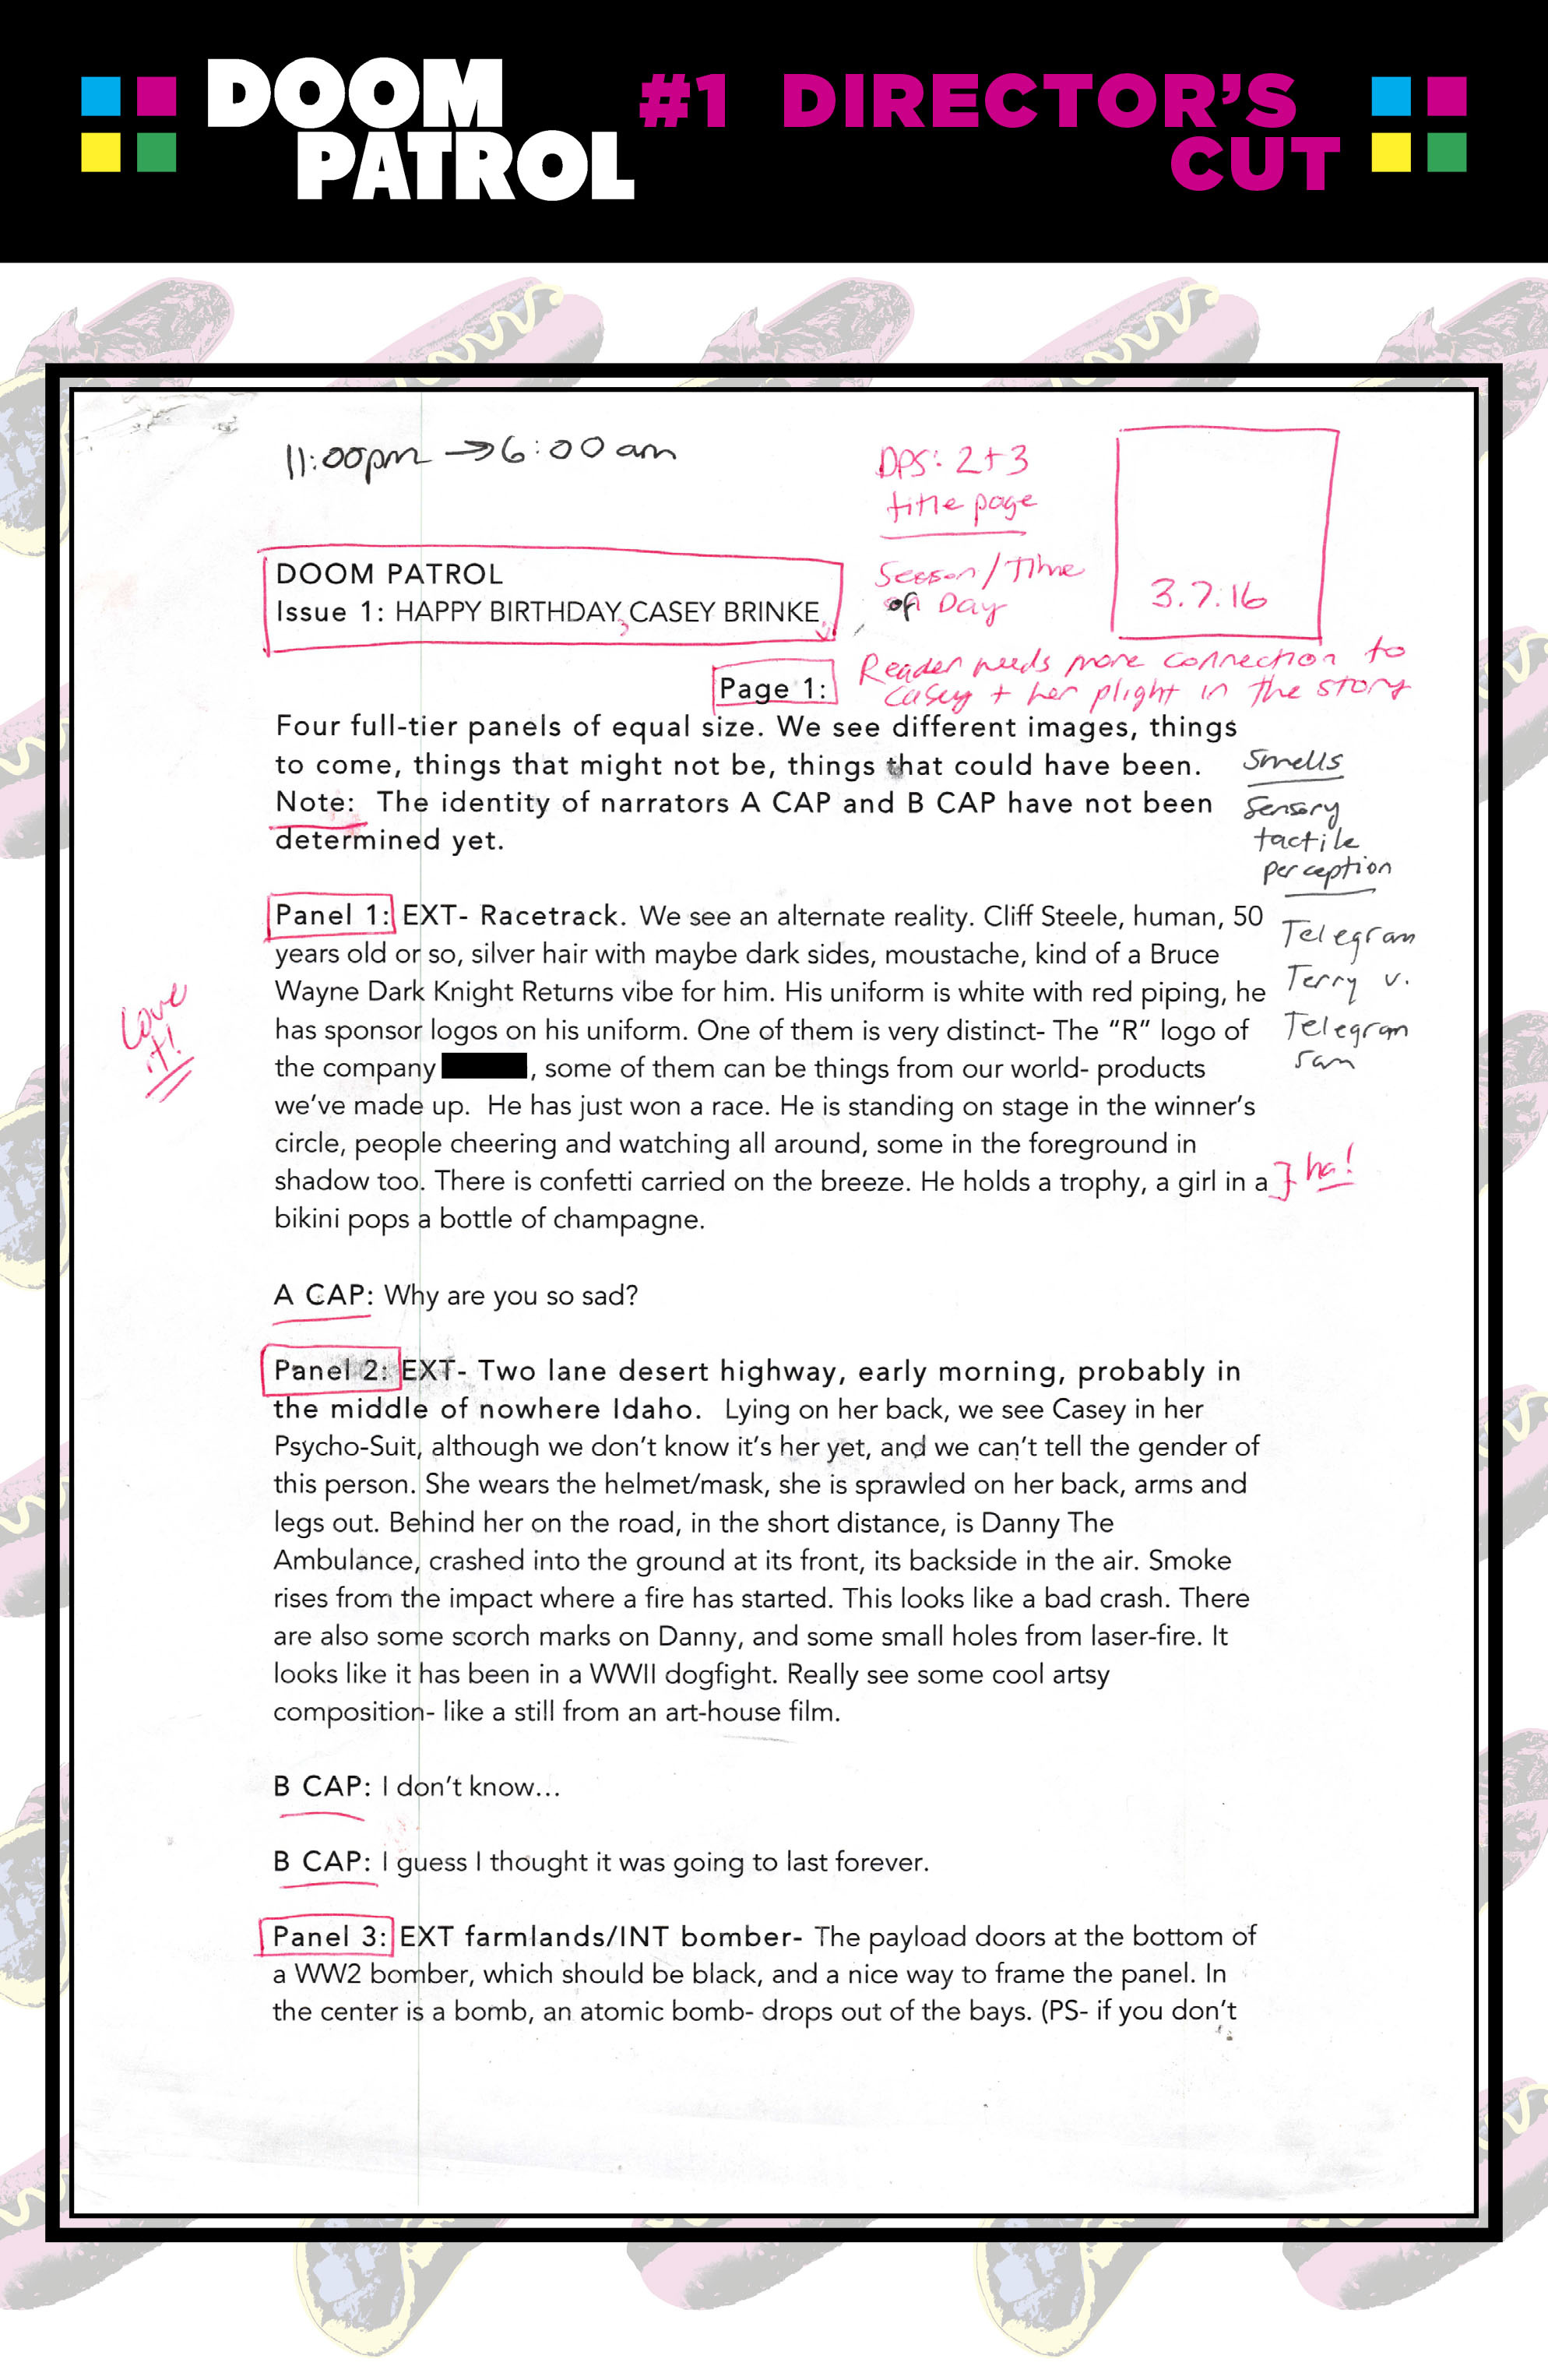 DOOM
PATROL
#1 DIRECTOR'S
CUT
11:00pm → 6:00 am
DPS: 2+3
title page
Season / Time
of Day
3.7.16
DOOM PATROL
Issue 1: HAPPY BIRTHDAY, CASEY BRINKE
Page 1:
Reader needs more connection to
Casey + her plight in the story
Four full-tier panels of equal size. We see different images, things
to come, things that might not be, things that could have been.
Note: The identity of narrators A CAP and B CAP have not been
determined yet.
Smells
Sensory
tactile
perception
Panel 1: EXT- Racetrack. We see an alternate reality. Cliff Steele, human, 50
years old or so, silver hair with maybe dark sides, moustache, kind of a Bruce
Wayne Dark Knight Returns vibe for him. His uniform is white with red piping, he
has sponsor logos on his uniform. One of them is very distinct- The “R” logo of
the company , some of them can be things from our world- products
we’ve made up. He has just won a race. He is standing on stage in the winner’s
circle, people cheering and watching all around, some in the foreground in
shadow too. There is confetti carried on the breeze. He holds a trophy, a girl in a
bikini pops a bottle of champagne.
Telegram
Terry v.
Telegram
Sam
Love
it!
ha!
A CAP: Why are you so sad?
Panel 2: EXT- Two lane desert highway, early morning, probably in
the middle of nowhere Idaho. Lying on her back, we see Casey in her
Psycho-Suit, although we don’t know it’s her yet, and we can’t tell the gender of
this person. She wears the helmet/mask, she is sprawled on her back, arms and
legs out. Behind her on the road, in the short distance, is Danny The
Ambulance, crashed into the ground at its front, its backside in the air. Smoke
rises from the impact where a fire has started. This looks like a bad crash. There
are also some scorch marks on Danny, and some small holes from laser-fire. It
looks like it has been in a WWII dogfight. Really see some cool artsy
composition- like a still from an art-house film.
B CAP: I don’t know…
B CAP: I guess I thought it was going to last forever.
Panel 3: EXT farmlands/INT bomber- The payload doors at the bottom of
a WW2 bomber, which should be black, and a nice way to frame the panel. In
the center is a bomb, an atomic bomb- drops out of the bays. (PS- if you don’t